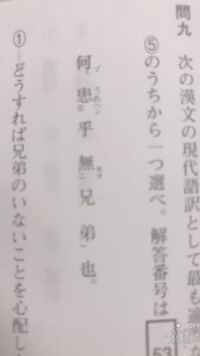 問九 次の漢文の現代語訳として最も適当な
⑤のうちから一つ選べ。解答番号は 53
何患乎無兄弟也。
① どうすれば兄弟のいないことを心配し